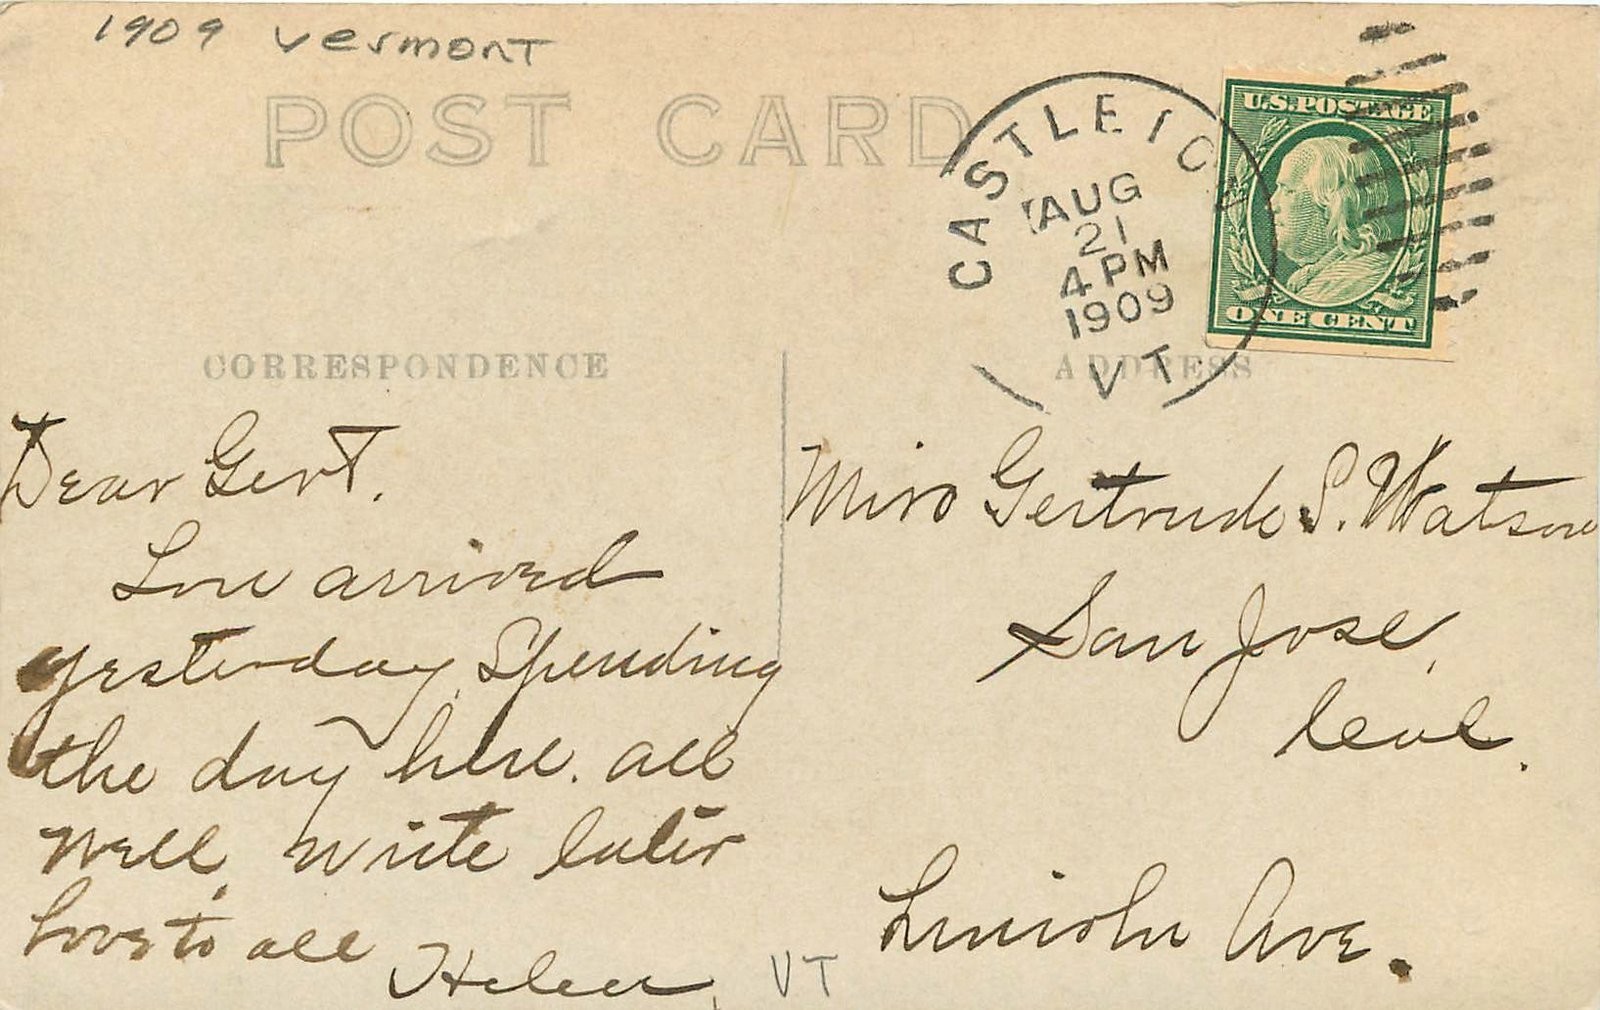 1909 Vermont
POST CARD
CASTLETON
AUG
21
4 PM
1909
VT
U.S. POSTAGE
ONE CENT
CORRESPONDENCE
Dear Gert.
Lou arrived
yesterday, Spending
the day here. all
well, write later
Love to all
Helen, VT
ADDRESS
Miss Gertrude S. Watson
San Jose,
Cal.
Lincoln Ave.